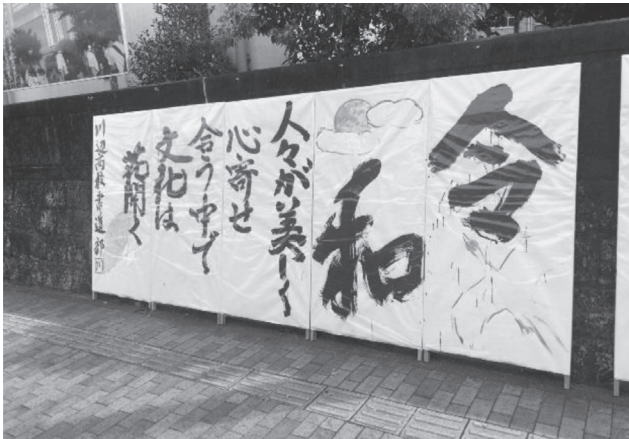 令
和
人々が美しく
心寄せ
合う中で
文化は
花開く
川辺高校書道部